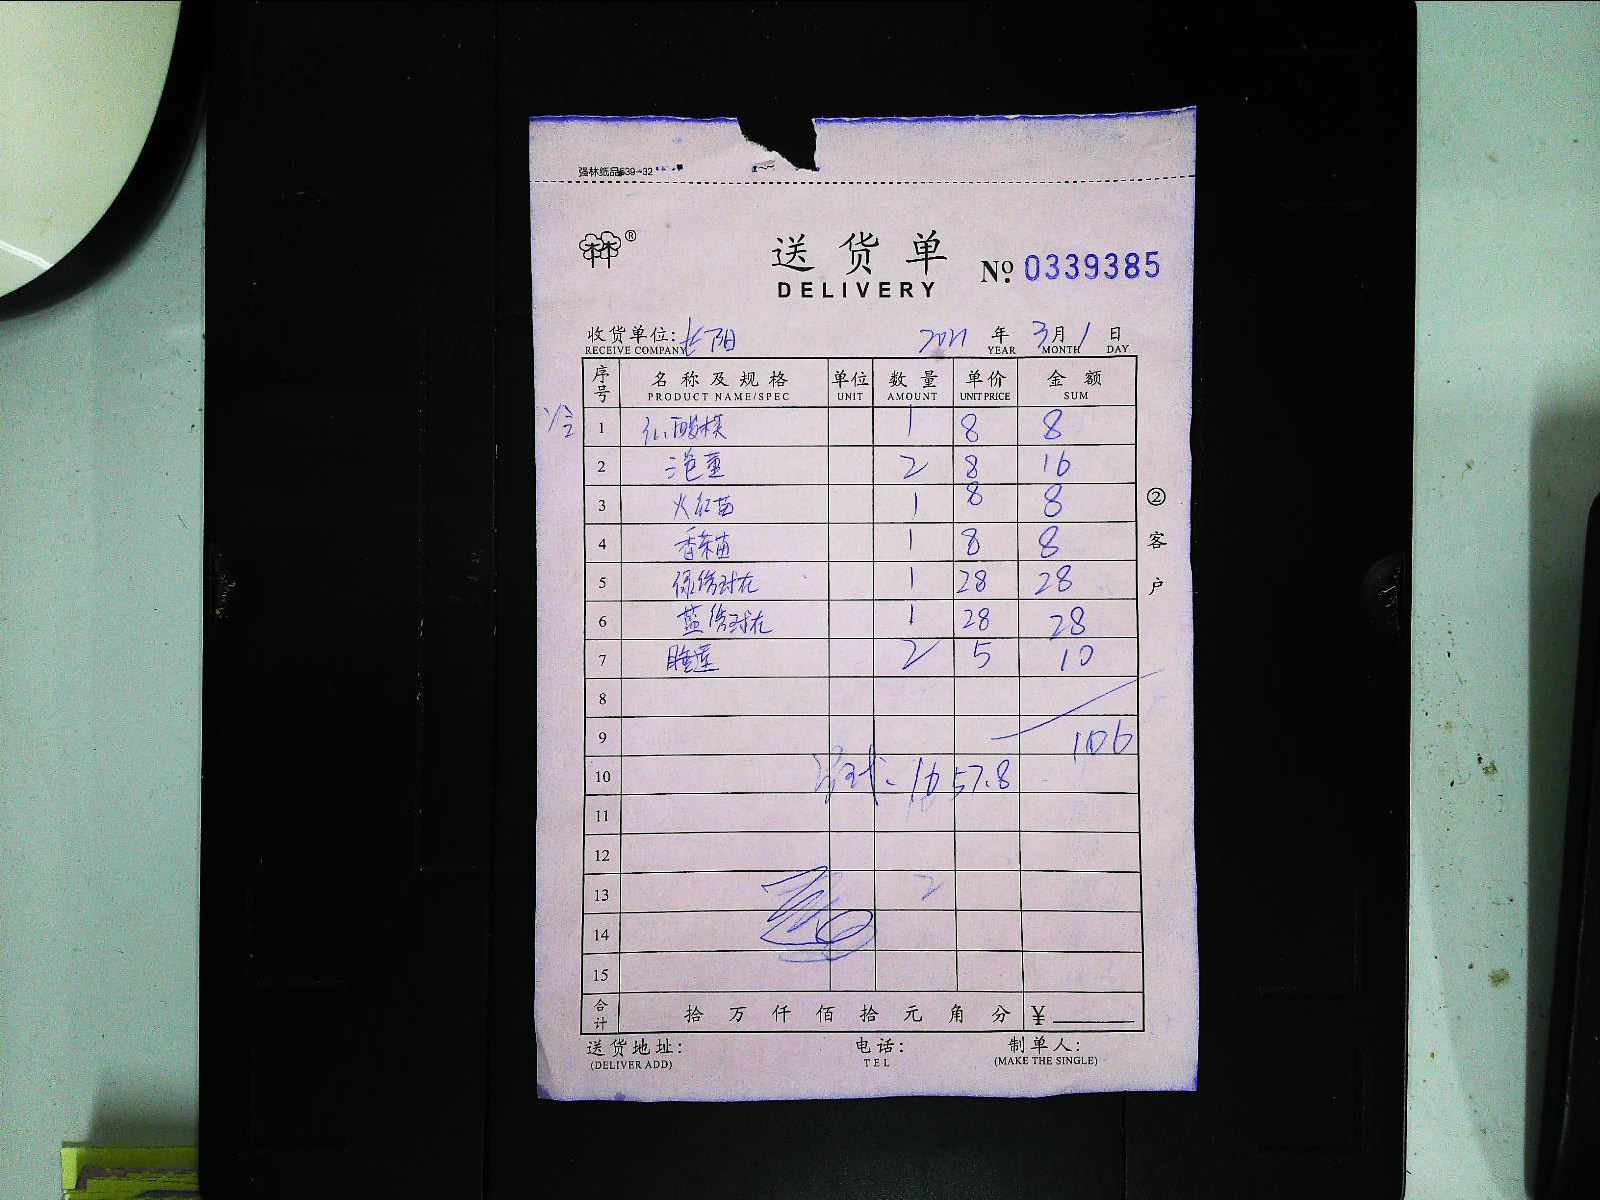 强林纸品639-32
送货单
DELIVERY
№ 0339385
收货单位: 长阳 2021 年 3 月 1 日
RECEIVE COMPANY YEAR MONTH DAY
序号 名称及规格 单位 数量 单价 金额
PRODUCT NAME/SPEC UNIT AMOUNT UNIT PRICE SUM
1 红酸模 1 8 8
2 2 8 16
3 火红苗 1 8 8
4 香菜苗 1 8 8
5 1 28 28
6 1 28 28
7 睡莲 2 5 10
8
9 106
10 1657.8
11
12
13
14
15
合计 拾 万 仟 佰 拾 元 角 分 ¥
② 客户
送货地址: 电话: 制单人:
(DELIVER ADD) TEL (MAKE THE SINGLE)